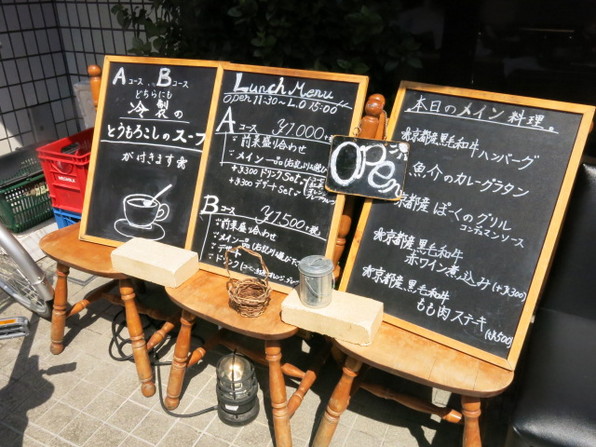 Aコース Bコース
どちらにも
冷製の
とうもろこしのスープ
が付きます
Lunch Menu
open 11:30~L.O 15:00
Aコース ¥1,000
前菜盛り合わせ
メイン一品
+¥300 ドリンクSet
+¥300 デザートSet
Bコース ¥1,500
前菜盛り合わせ
メイン一品
デザート
ドリンク
OPEN
本日のメイン料理。
京都産黒毛和牛
ハンバーグ
魚介のカレーグラタン
京都産ぽくのグリル
ソース
京都産黒毛和牛
赤ワイン煮込み(+¥300)
京都産黒毛和牛
もも肉ステーキ
(+¥500)